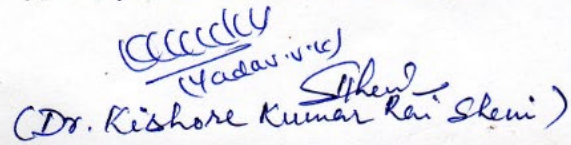 (Yadav.v.k)
(Dr. Kishore Kumar Rai Sheni)